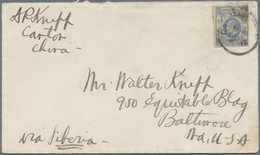 S.P. Kniff
Canton
China
Mr. Walter Kniff
900 Equitable Bldg
Baltimore
Md, U.S.A
via Siberia